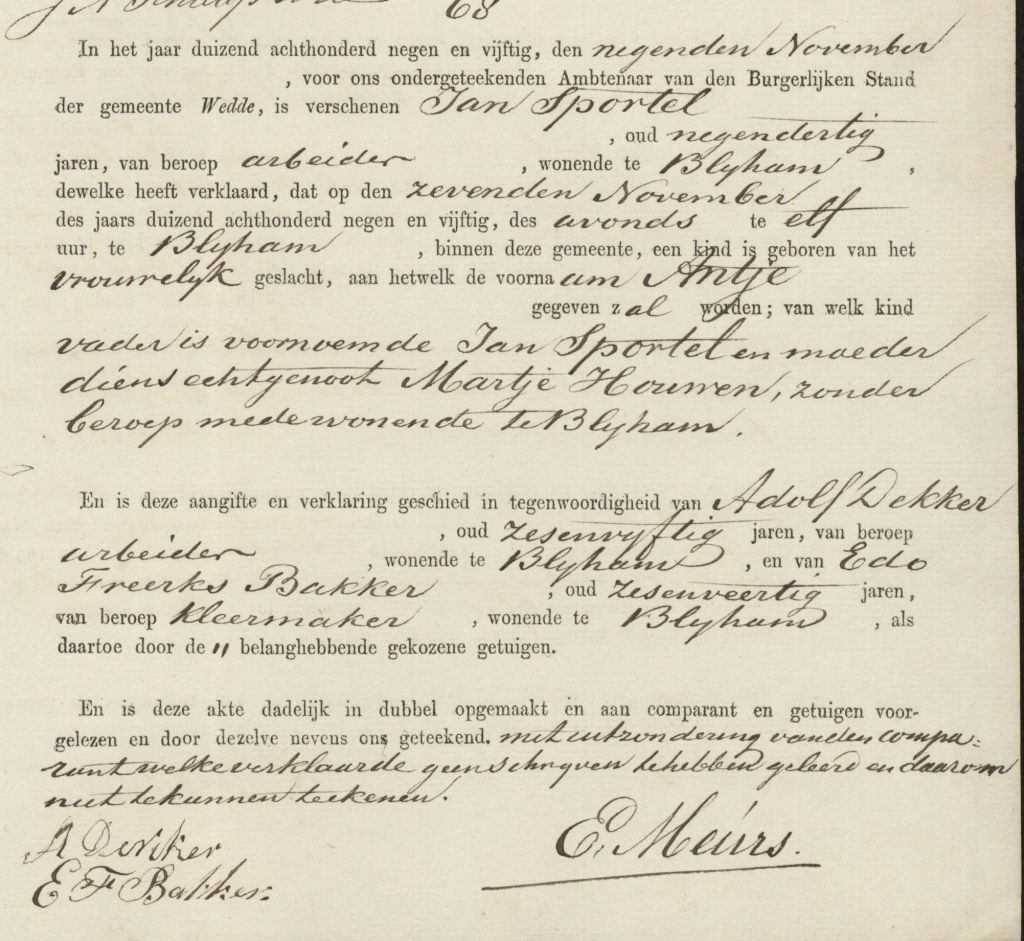 68
In het jaar duizend achthonderd negen en vijftig, den negenden November
, voor ons ondergeteekenden Ambtenaar van den Burgerlijken Stand
der gemeente Wedde, is verschenen Jan Sportel
, oud negendertig
jaren, van beroep arbeider , wonende te Blyham ,
dewelke heeft verklaard, dat op den zevenden November
des jaars duizend achthonderd negen en vijftig, des avonds te elf
uur, te Blyham , binnen deze gemeente, een kind is geboren van het
vrouwelyk geslacht, aan hetwelk de voornaam Antje
gegeven zal worden; van welk kind
vader is voornoemde Jan Sportel en moeder
diens echtgenoot Martje Houwen, zonder
beroep mede wonende te Blyham.
En is deze aangifte en verklaring geschied in tegenwoordigheid van Adolf Dekker
, oud zesenvyftig jaren, van beroep
arbeider , wonende te Blyham , en van Edo
Freerks Bakker , oud zesenveertig jaren,
van beroep kleermaker , wonende te Blyham , als
daartoe door de " belanghebbende gekozene getuigen.
En is deze akte dadelijk in dubbel opgemaakt en aan comparant en getuigen voor-
gelezen en door dezelve nevens ons geteekend. met uitzondering van den compa=
rant welke verklaarde geen schryven te hebben geleerd en daarom
niet te kunnen teekenen.
A Dekker
E. Meurs.
E F Bakker.